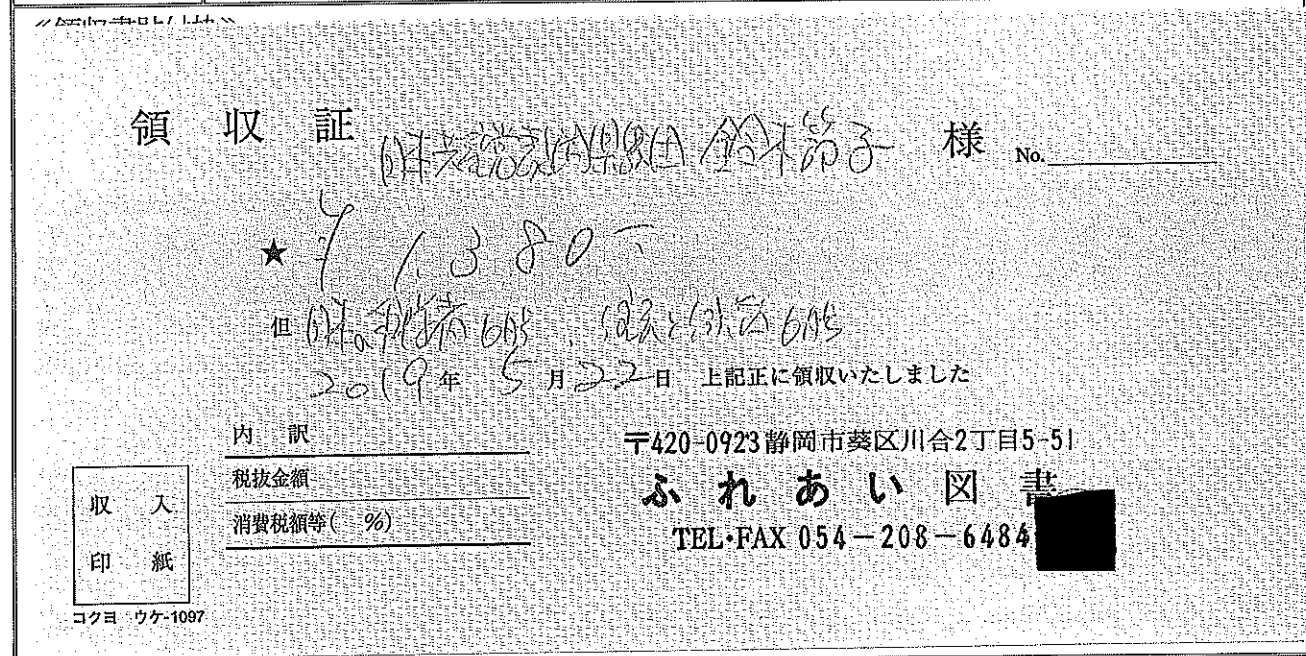 領収証 日本共産党静岡県議団 鈴木節子 様 No.
★ ¥1,380-
但 6月号、 6月号
2019年 5月22日 上記正に領収いたしました
内 訳
税抜金額
消費税額等( %)
収 入
印 紙
コクヨ ウケ-1097
〒420-0923静岡市葵区川合2丁目5-51
ふれあい図書
TEL・FAX 054-208-6484